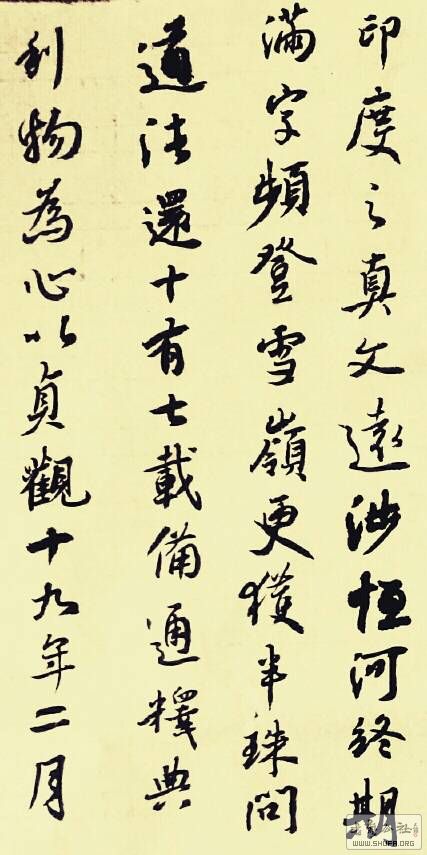 印度之真文遠涉恒河終期
滿字頻登雪嶺更獲半珠問
道法還十有七載備通釋典
利物為心以貞觀十九年二月
WWW.SHUFA.ORG